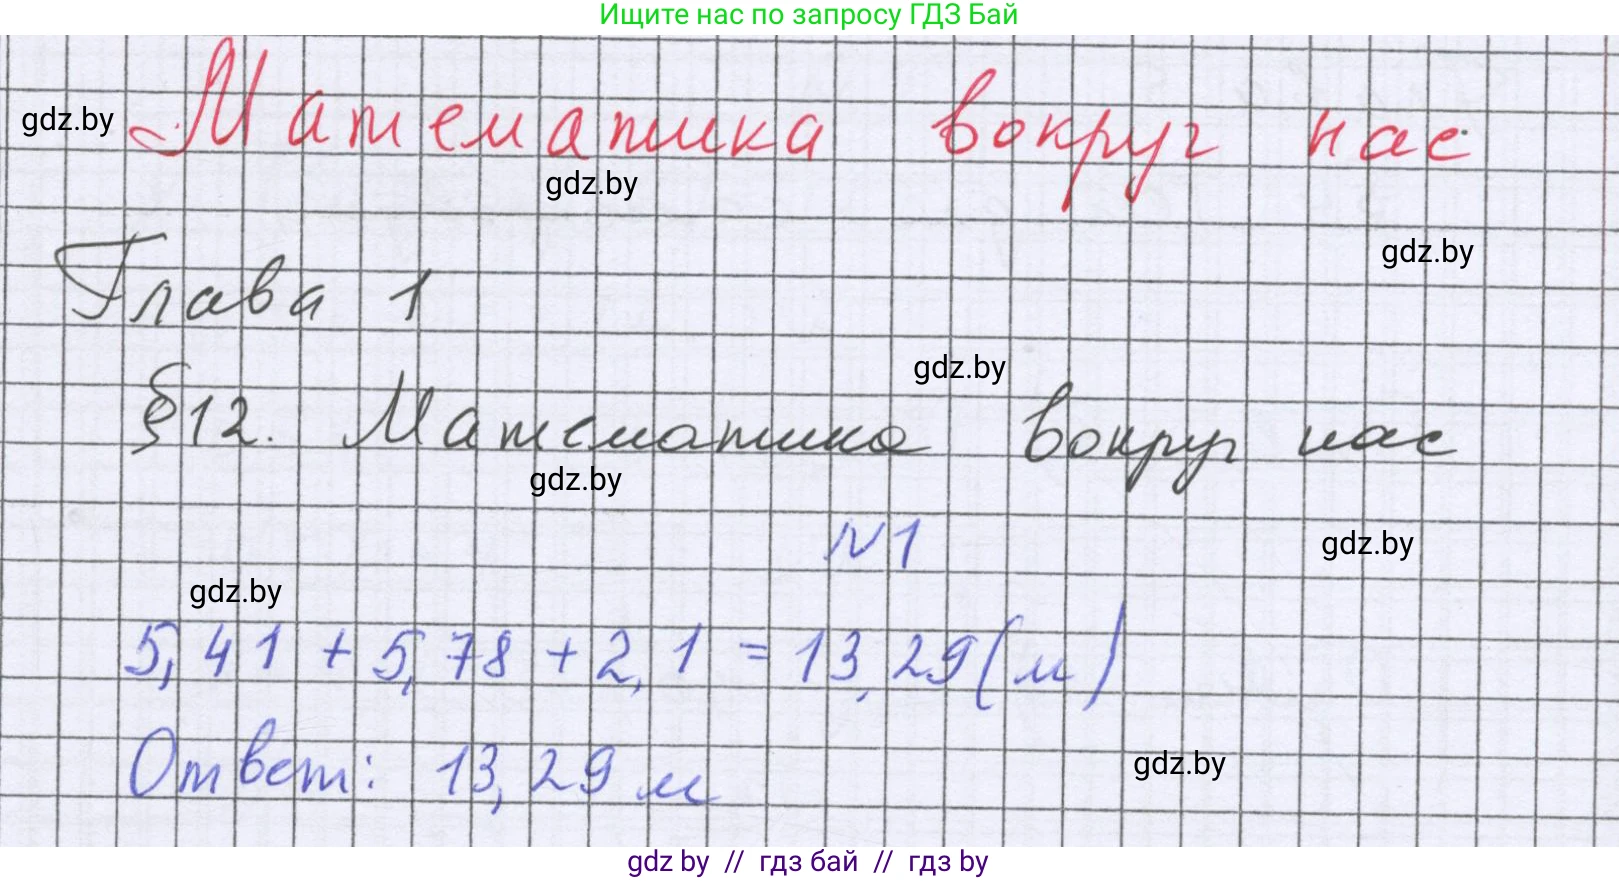 Ищите нас по запросу ГДЗ Бай
Математика вокруг нас
gdz.by
gdz.by
gdz.by
Глава 1
gdz.by
§12. Математика вокруг нас
gdz.by
N1
gdz.by
gdz.by
5,41 + 5,78 + 2,1 = 13,29 (м)
Ответ: 13,29 м
gdz.by
gdz by // гдз бай // гдз by